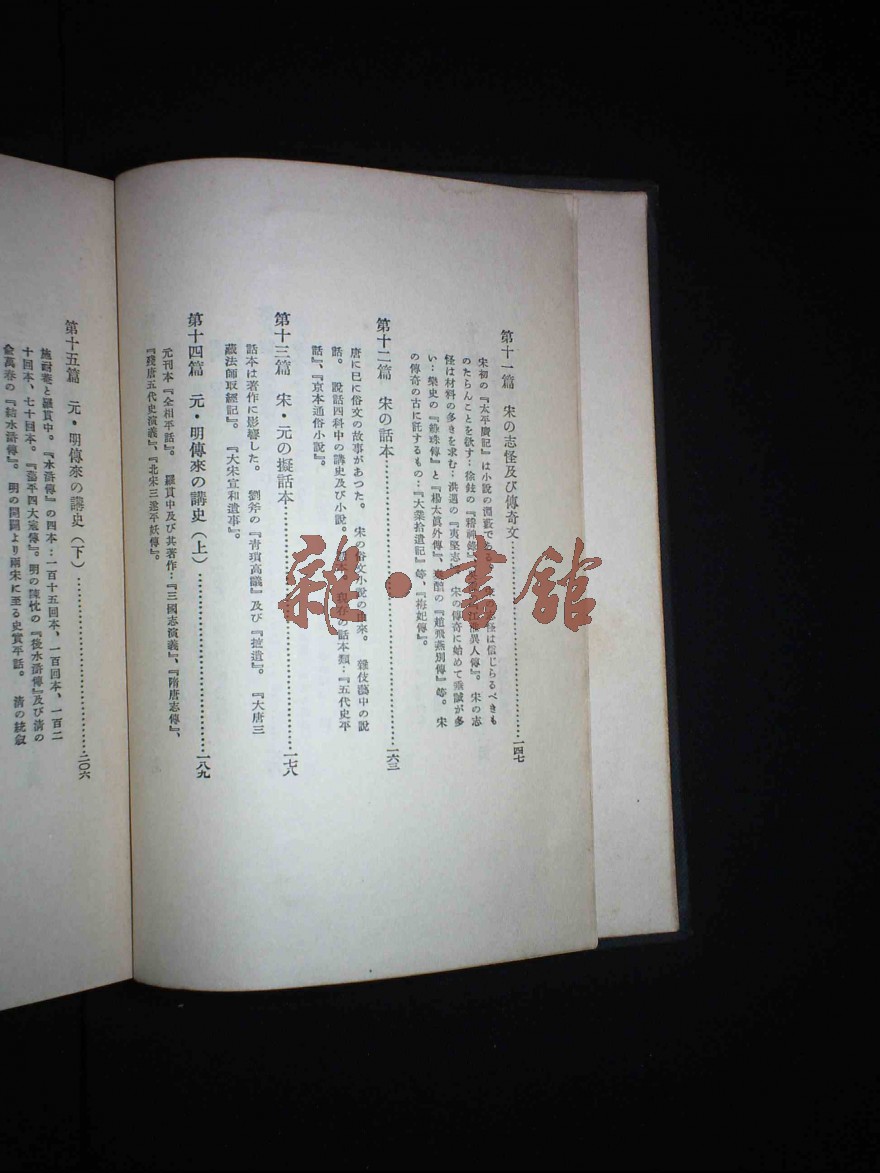 第十一篇 宋の志怪及び傳奇文……一四七
宋初の『太平廣記』は小說の淵藪である 志怪は信じらるべきも
のたらんことを欲す…徐鉉の『稽神錄』 『江淮異人傳』。 宋の志
怪は材料の多きを求む…洪邁の『夷堅志』 宋の傳奇に始めて垂誡が多
い…樂史の『綠珠傳』と『楊太眞外傳』、 醇の『趙飛燕別傳』等。 宋
の傳奇の古に託するもの…『大業拾遺記』等、『梅妃傳』。
第十二篇 宋の話本……一六三
唐に已に俗文の故事があつた。 宋の俗文小說の由來。 雜伎藝中の說
話。 說話四科中の講史及び小說。 話本。 現存の話本類…『五代史平
話』、『京本通俗小說』。
第十三篇 宋・元の擬話本……一七八
話本は著作に影響した。 劉斧の『青瑣高議』及び『摭遺』。 『大唐三
藏法師取經記』。 『大宋宣和遺事』。
第十四篇 元・明傳來の講史（上）……一八九
元刊本『全相平話』。 羅貫中及び其著作…『三國志演義』、『隋唐志傳』、
『殘唐五代史演義』、『北宋三遂平妖傳』。
第十五篇 元・明傳來の講史（下）……二〇六
施耐菴と羅貫中。『水滸傳』の四本…一百十五回本、一百回本、一百二
十回本、七十回本。『 四大寇傳』。明の陳忱の『後水滸傳』及び清の
兪萬春の『結水滸傳』。 明の開闢より兩宋に至る史實平話。 清の統叙
雜・書館